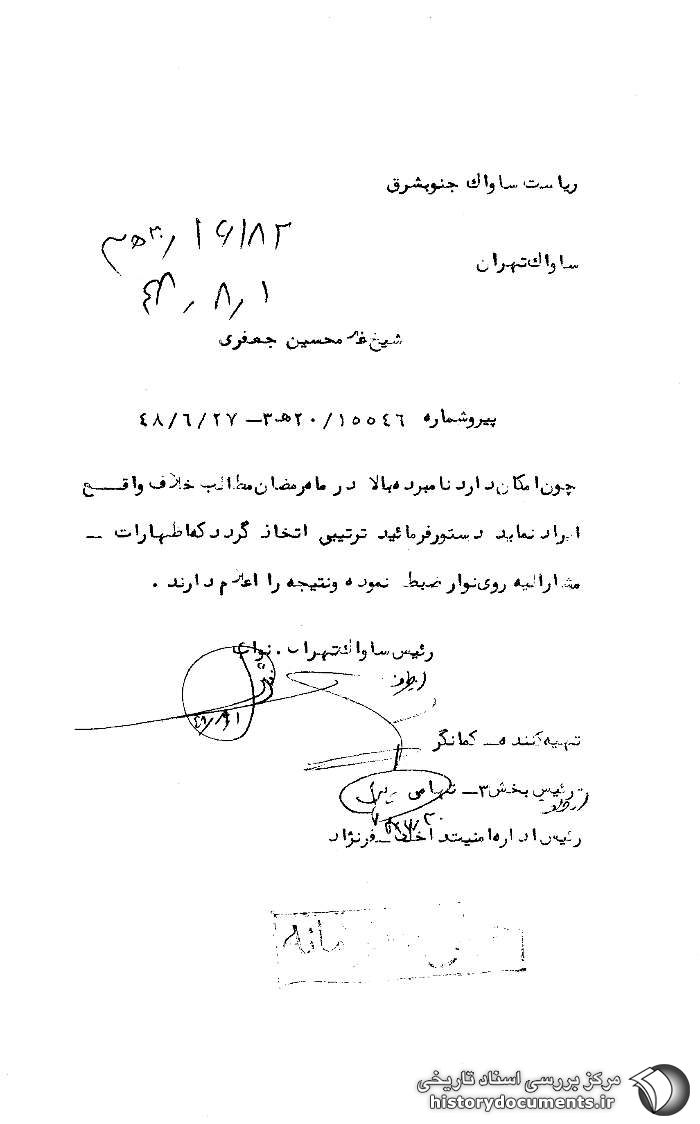 ریاست ساواك جنوبشرق
۱۶۱۸۲/۲۰ﻫ۳
ساواك تهران
۴۸/۸/۱
شیخ غلامحسین جعفری
پیرو شماره ۱۵۵٤٦/۲۰ﻫ۳ـ ۲۷/٦/٤۸
چون امکان دارد نامبرده بالا در ماه رمضان مطالب خلاف واقـــع
ایراد نماید دستور فرمائید ترتیبی اتخاذ گردد که اظهارات ـ
مشارالیه روی نوار ضبط نموده ونتیجه را اعلام دارند .
رئیس ساواك تهران . نواب
از طرف
تهیه کننده ـ کمانگر
رئیس بخش ۳ـ تهامی
رئیس اداره امنیت داخلی ـ فرنژاد
مرکز بررسی اسناد تاریخی
historydocuments.ir